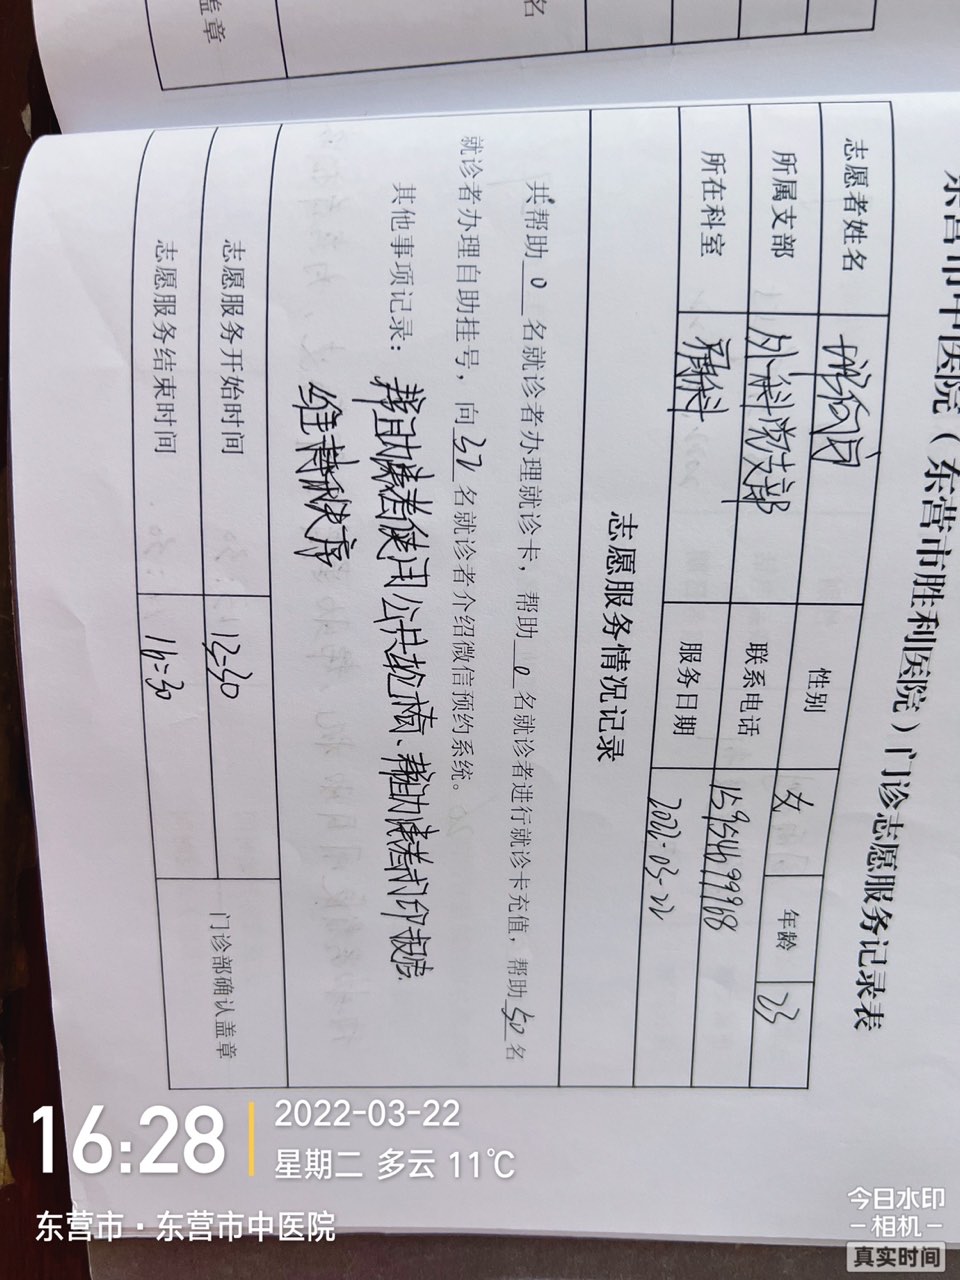 盖章
名
东营市中医院（东营市胜利医院）门诊志愿服务记录表
志愿者姓名 性别 女 年龄 23
所属支部 外科党支部 联系电话
所在科室 服务日期 2022-03-22
志愿服务情况记录
共帮助 0 名就诊者办理就诊卡，帮助 0 名就诊者进行就诊卡充值，帮助 50 名
就诊者办理自助挂号，向 32 名就诊者介绍微信预约系统。
其他事项记录：帮助患者使用公共轮椅、帮助患者打印报告
维持秩序
志愿服务开始时间 12:30 门诊部确认盖章
志愿服务结束时间 16:30
16:28
2022-03-22
星期二 多云 11℃
东营市·东营市中医院
今日水印
-相机-
真实时间